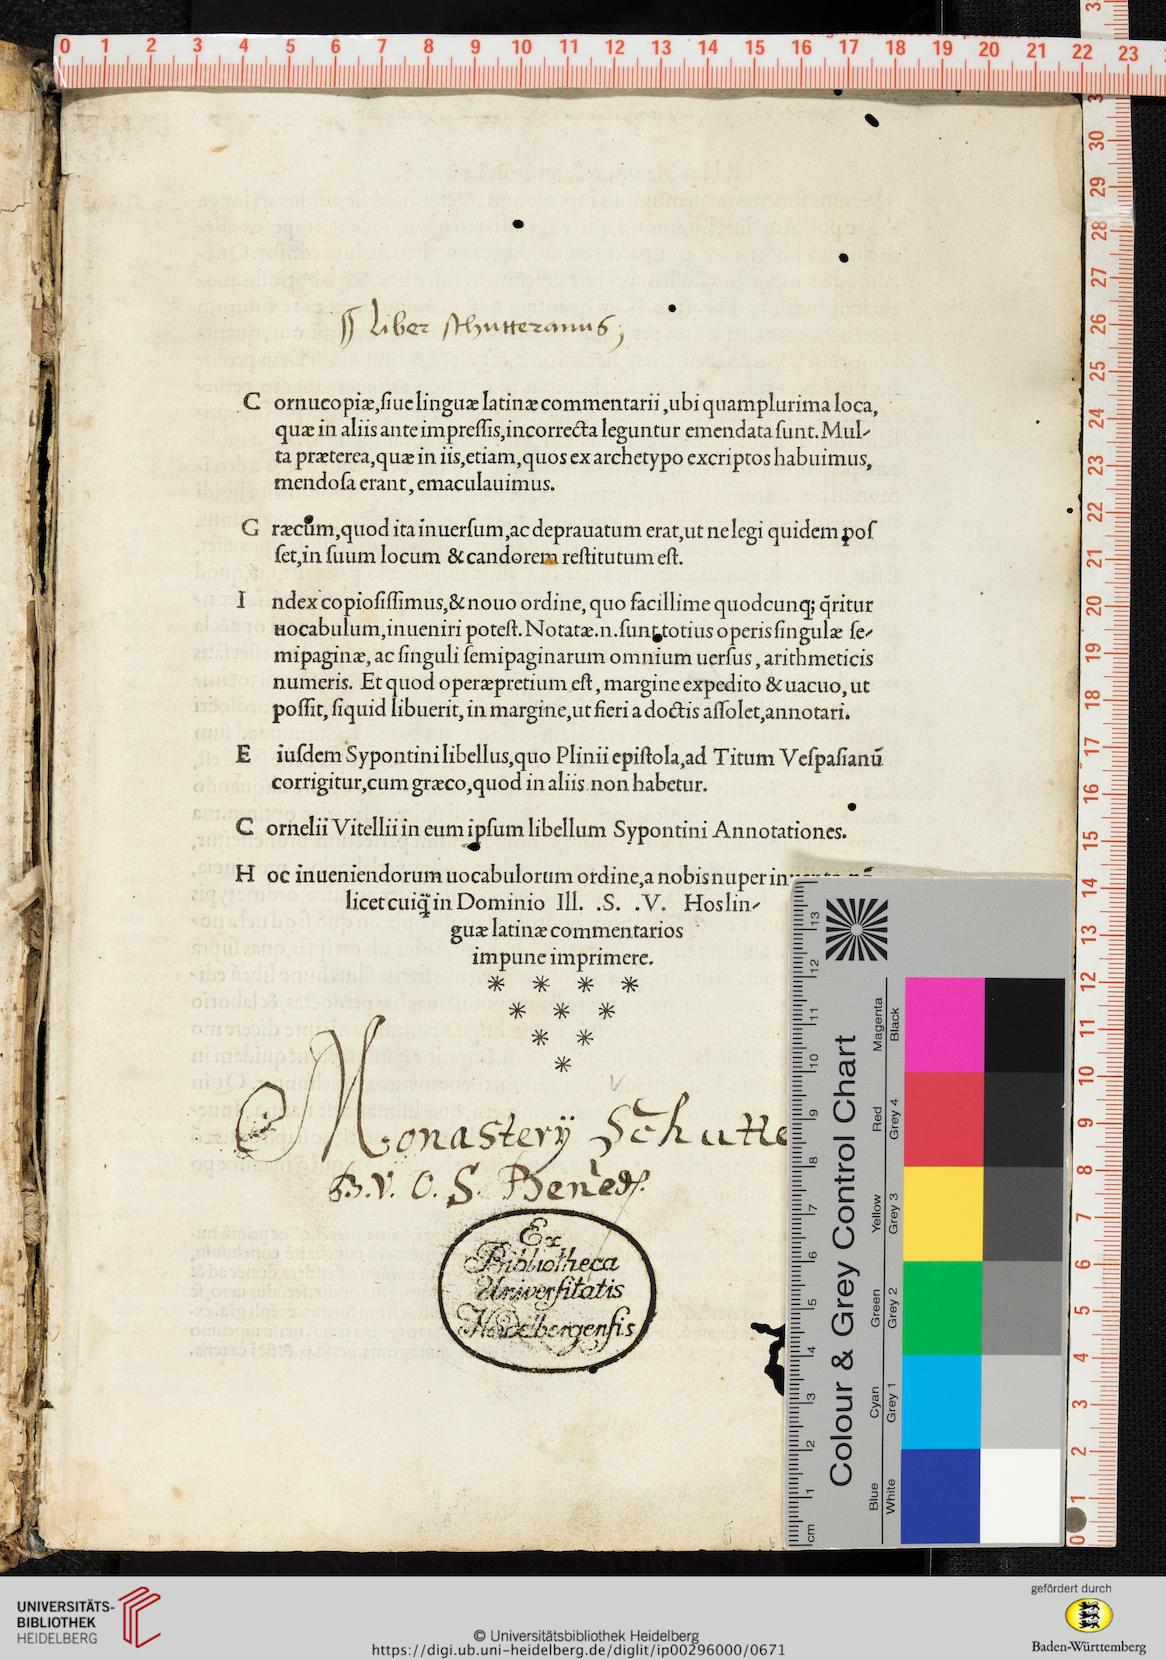 liber schutteranus;
C ornucopiæ, siue linguæ latinæ commentarii, ubi quamplurima loca,
quæ in aliis ante impreſſis, incorrecta leguntur emendata ſunt. Mul-
ta præterea, quæ in iis, etiam, quos ex archetypo excriptos habuimus,
mendoſa erant, emaculauimus.
G ræcum, quod ita inuerſum, ac deprauatum erat, ut ne legi quidem poſ
ſet, in ſuum locum & candorem reſtitutum eſt.
I ndex copioſiſſimus, & nouo ordine, quo facillime quodcunq; q̃ritur
uocabulum, inueniri poteſt. Notatæ.n. ſunt totius operis ſingulæ ſe-
mipaginæ, ac ſinguli ſemipaginarum omnium uerſus, arithmeticis
numeris. Et quod operæpretium eſt, margine expedito & uacuo, ut
poſſit, ſiquid libuerit, in margine, ut fieri a doctis aſſolet, annotari.
E iuſdem Sypontini libellus, quo Plinii epiſtola, ad Titum Veſpaſianũ
corrigitur, cum græco, quod in aliis non habetur.
C ornelii Vitellii in eum ipſum libellum Sypontini Annotationes.
H oc inueniendorum uocabulorum ordine, a nobis nuper
licet cuiq̃ in Dominio Ill. .S. .V. Hos lin-
guæ latinæ commentarios
impune imprimere.
* * * *
* * *
* *
*
Monasterij Schutte
B.V. O. S. Bened.
Ex
Bibliotheca
Universitatis
Heidelbergensis
Colour & Grey Control Chart
Blue Cyan Green Yellow Red Magenta
White Grey 1 Grey 2 Grey 3 Grey 4 Black
cm 1 2 3 4 5 6 7 8 9 10 11 12 13
0 1 2 3 4 5 6 7 8 9 10 11 12 13 14 15 16 17 18 19 20 21 22 23
0 1 2 3 4 5 6 7 8 9 10 11 12 13 14 15 16 17 18 19 20 21 22 23 24 25 26 27 28 29 30
UNIVERSITÄTS-
BIBLIOTHEK
HEIDELBERG
© Universitätsbibliothek Heidelberg
https://digi.ub.uni-heidelberg.de/diglit/ip00296000/0671
gefördert durch
Baden-Württemberg